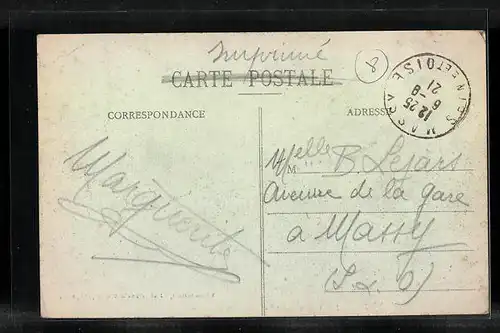 Imprimé
CARTE POSTALE
8
CORRESPONDANCE
ADRESSE
12 25
6 - 8
21
ET OISE
Marguerite
Melle B. Lejars
Avenue de la gare
à Massy
(S. & O)